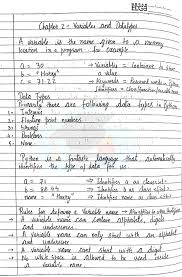 Chapter 2 - Variables and Datatypes
A variable is the name given to a memory
location in a program. For example
a = 30 → Variables = Container to store
b = "Harry" a value
c = 71.22 → Keywords = Reserved words in Python
→ Identifiers = class/function/variable name
Data Types
Primarily there are following data types in Python
1. Integers
2. Floating point numbers
3. Strings
4. Booleans
5. None
Python is a fantastic language that automatically
identifies the type of data for us.
a = 71 → Identifies a as class int
b = 88.44 → Identifies b as class float
name = "Harry" → Identifies name as class str
Rules for defining a Variable name
A variable name can contain alphabets, digits
and underscores.
A variable name can only start with an alphabet
and underscore
A variable name cant start with a digit
No white space is allowed to be used inside
a variable name